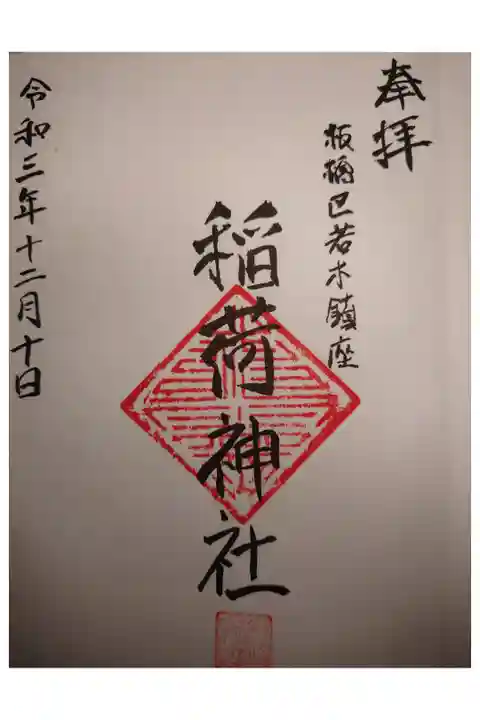 奉拝
板橋区若木鎮座
稲荷神社
令和三年十二月十日